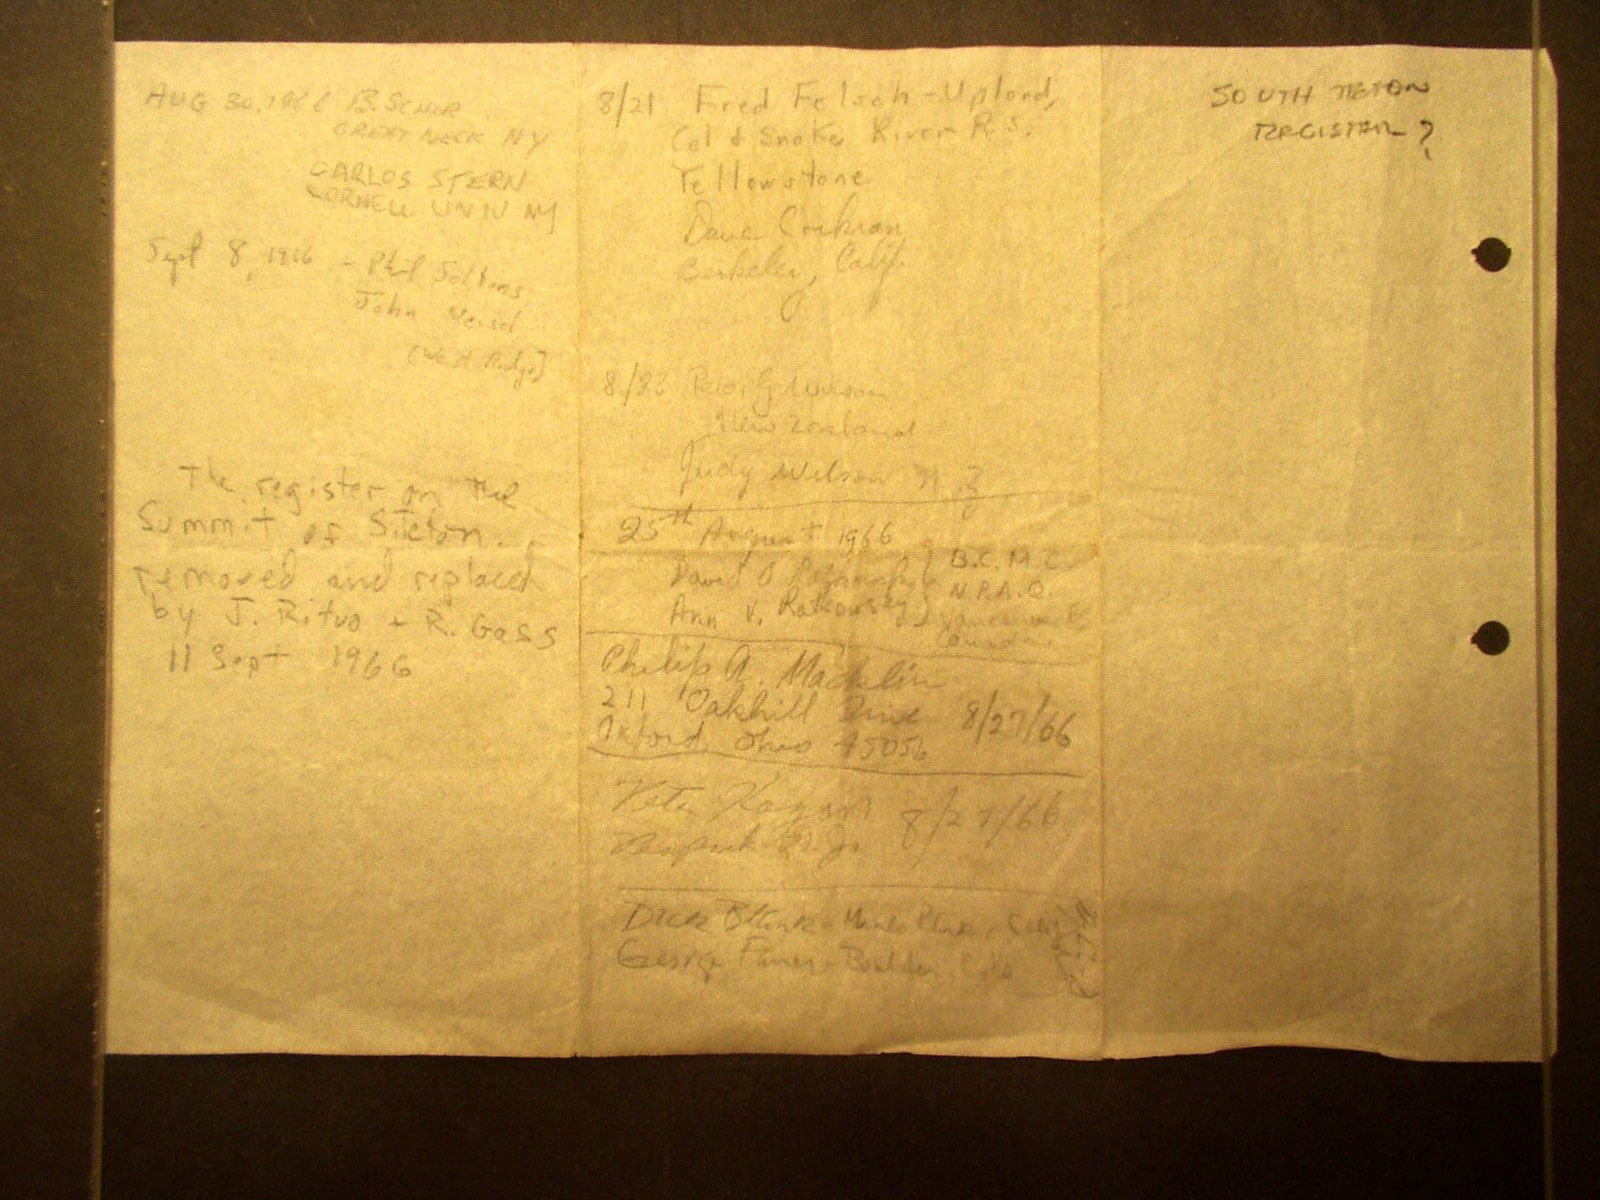 AUG 30, 1966 B.
GREAT NECK NY
CARLOS STERN
CORNELL UNIV NY
Sept 8, 1966 - Phil
John
[West Ridge]
The register on the
Summit of S. Teton.
removed and replaced
by J. Ritvo + R. Gass
11 Sept 1966
8/21 Fred Felsch - Upland,
Cal & Snake River R.S.
Yellowstone
Dave Corkran
Berkeley, Calif.
8/23 Wilson
New Zealand
Judy Wilson N.Z
25th August 1966
David O B.C.M.C.
Ann V. Ratkowsky
Vancouver
Canada
Philip A.
211 Oakhill Drive 8/27/66
Oxford, Ohio 45056
8/27/66
N.J.
Dick
George Boulder, Colo
SOUTH TETON
REGISTER?